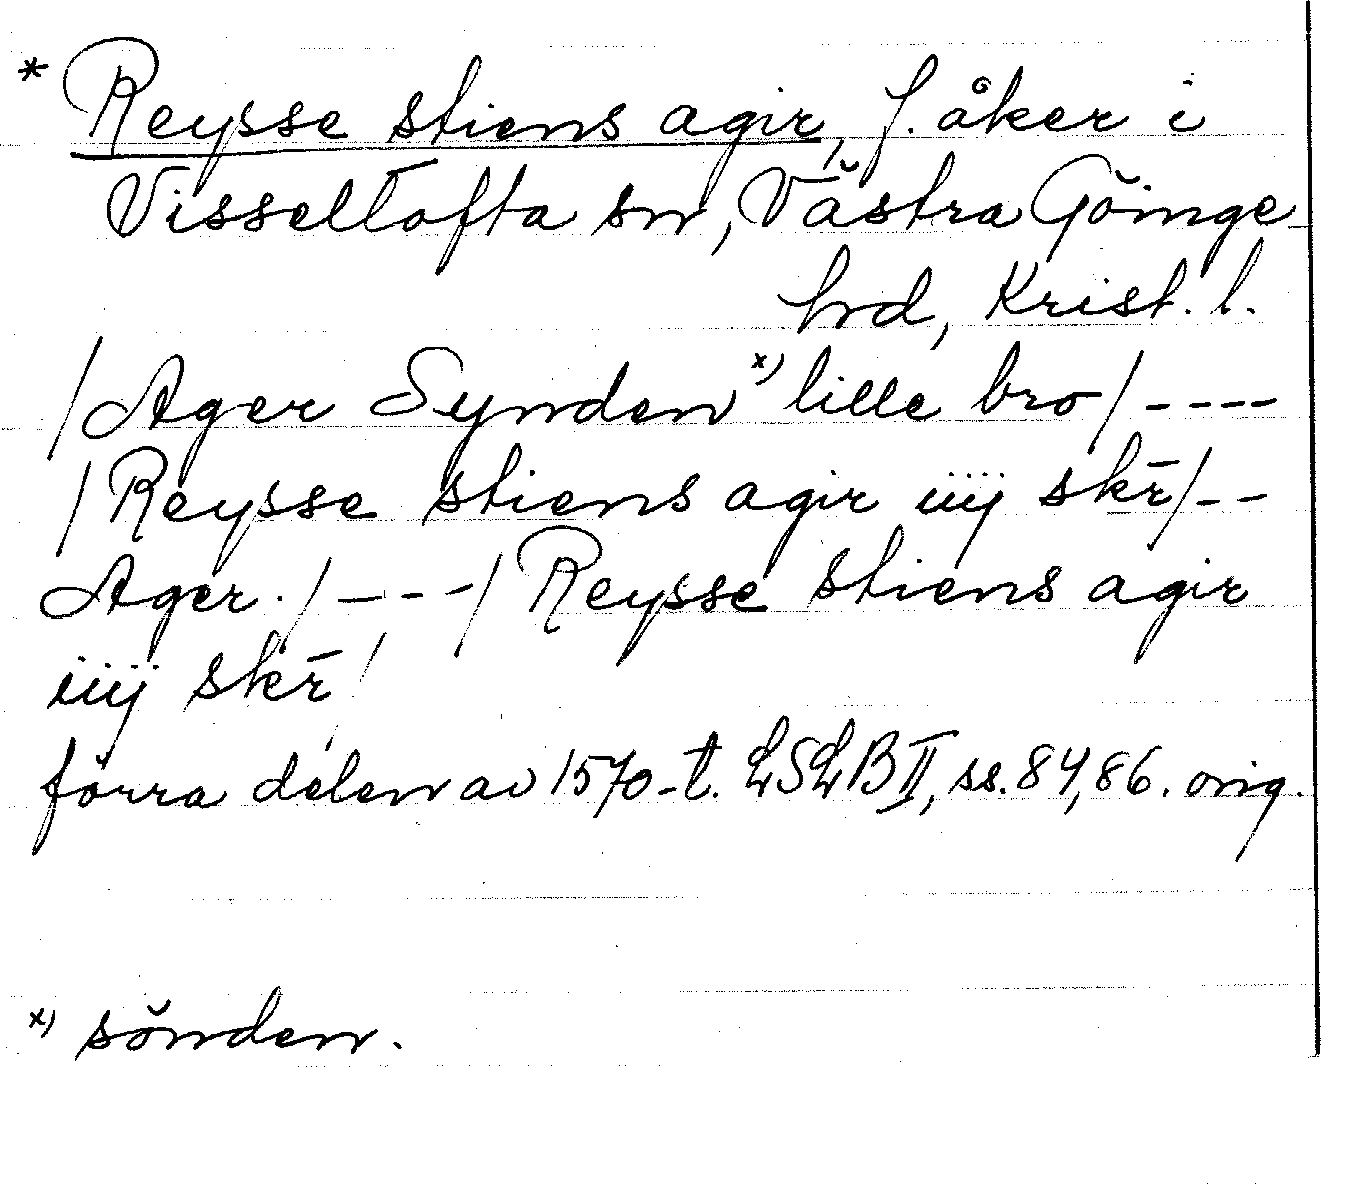 * Reysse stiens agir, f. åker i
Visseltofta sn, Västra Göinge
hrd, Krist. l.
/Ager Synden x) lille bro/ ----
/Reysse stiens agir iiij skr̄/--
Ager./----/Reysse stiens agir
iiij skr̄/
förra delen av 1570-t. LSLB II, ss. 84, 86. orig.
x) sönden.